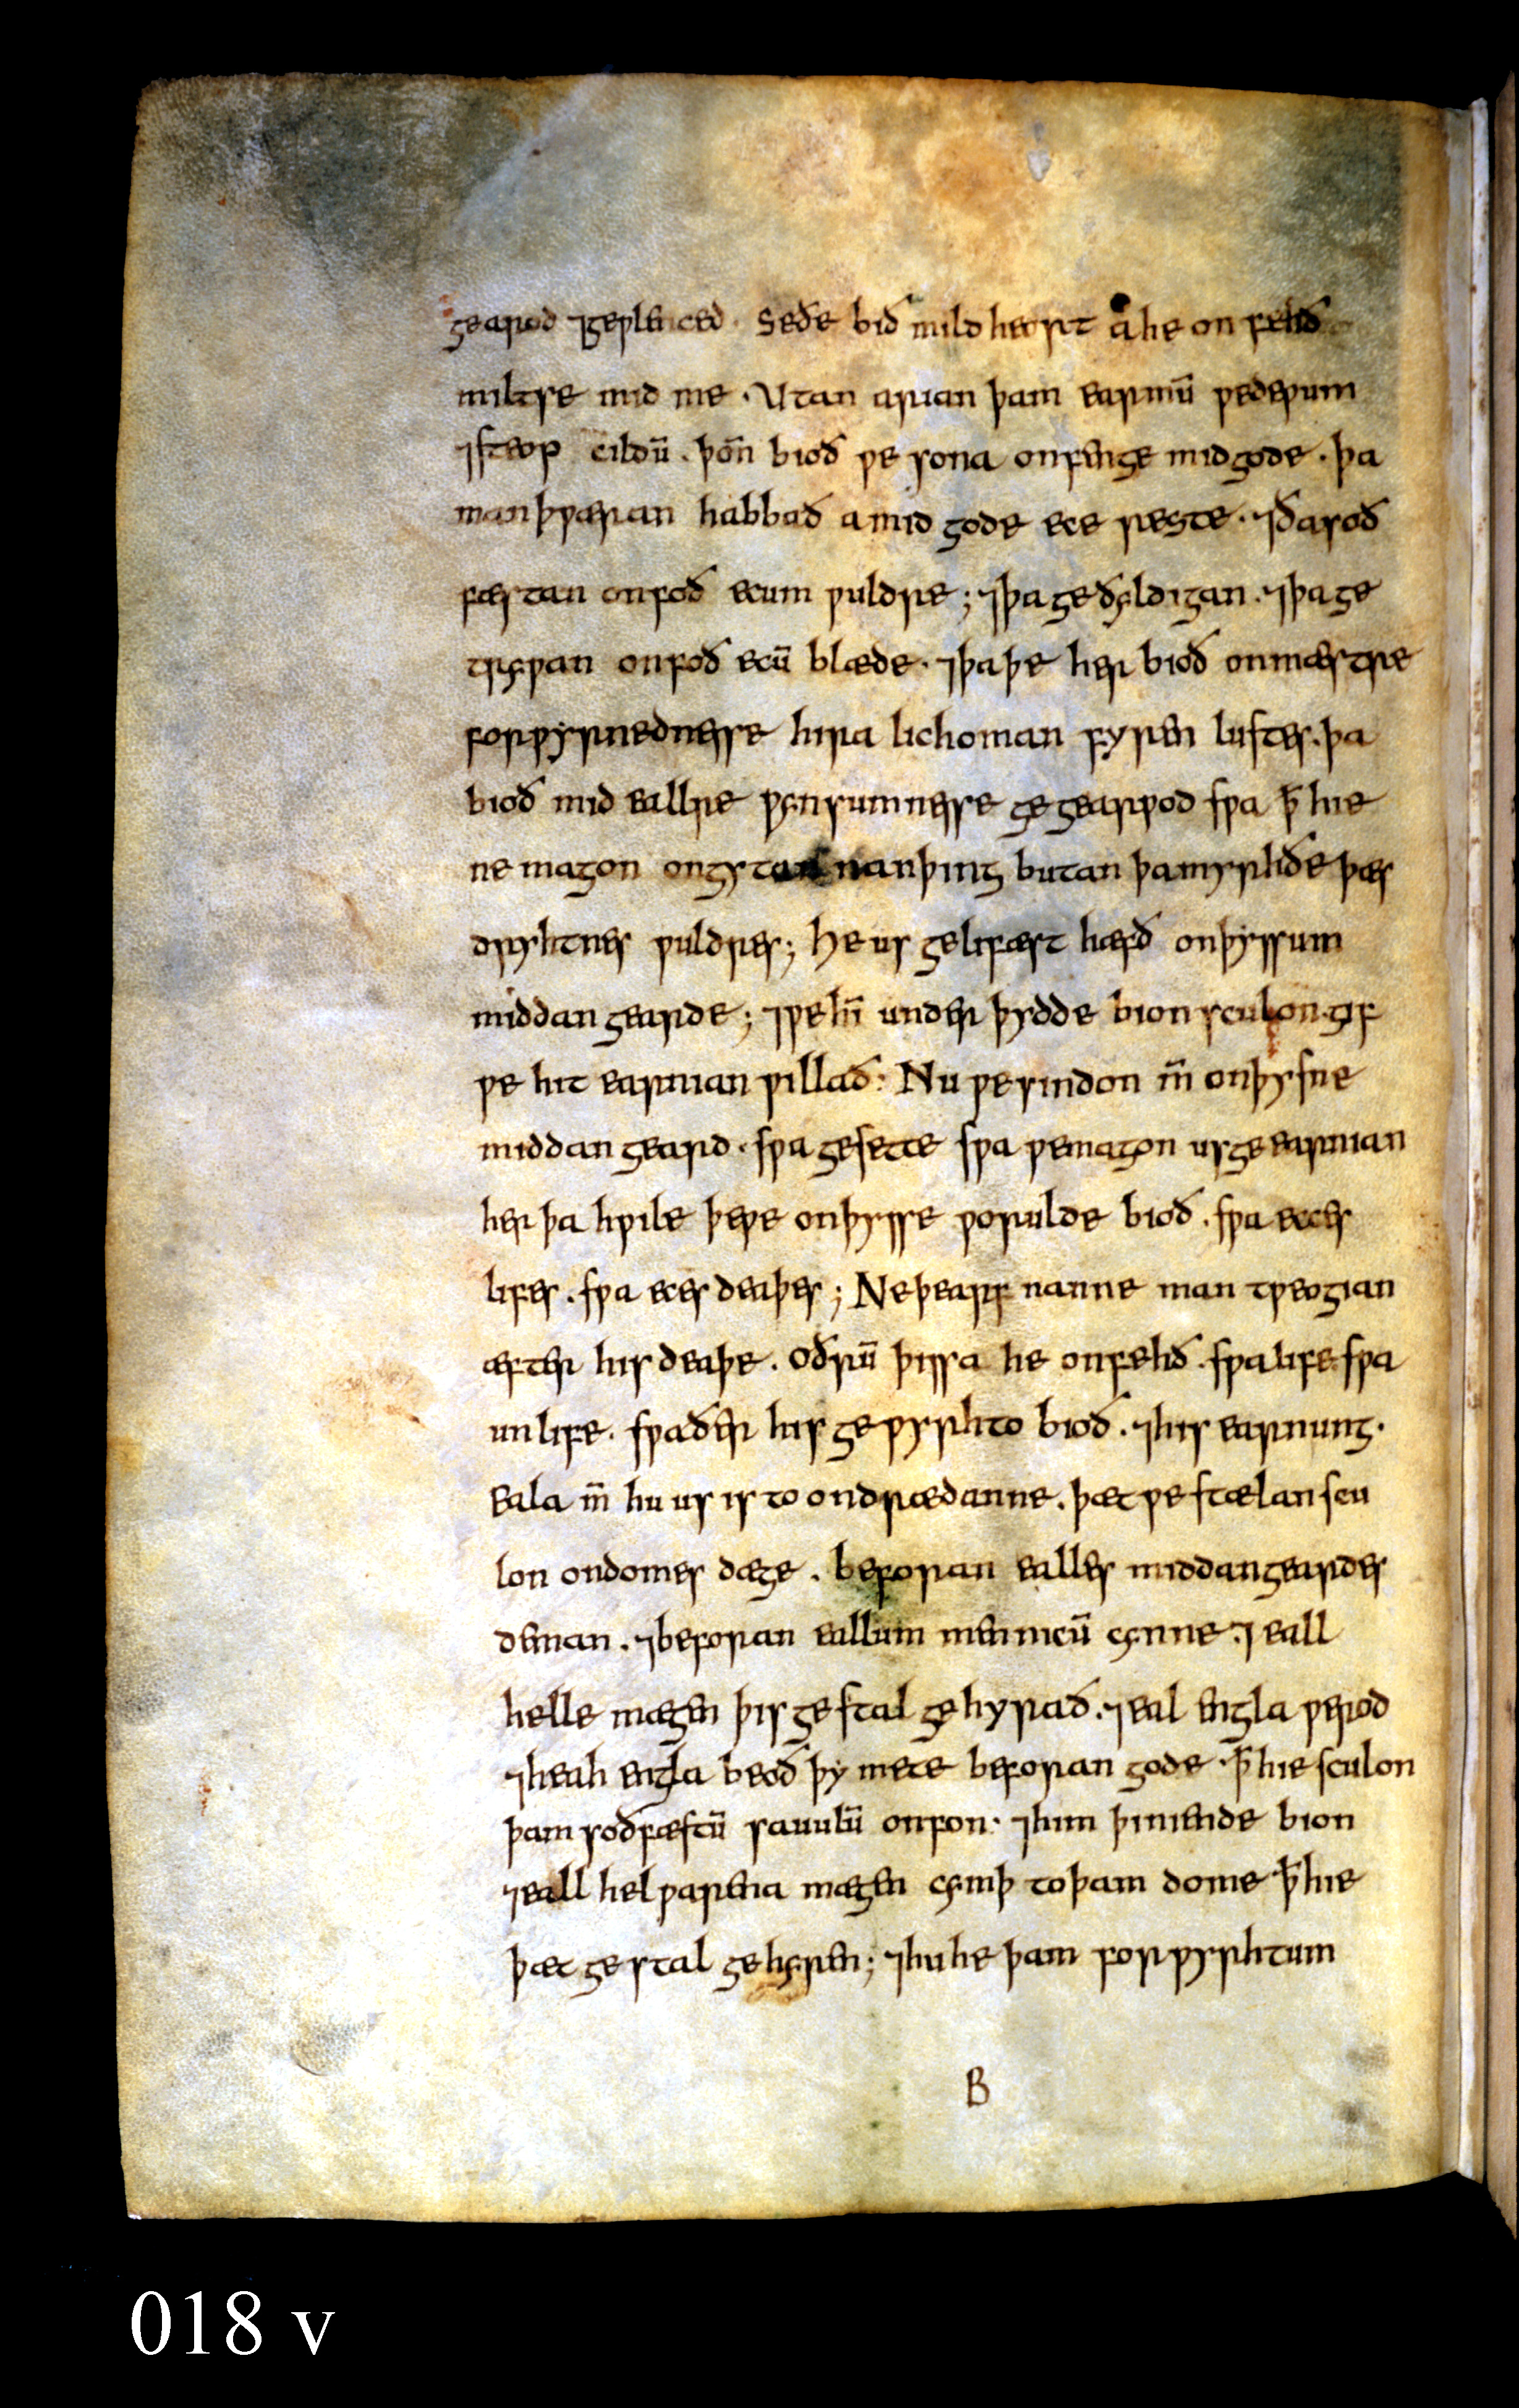 gearod ⁊geƿlenced. Seðe bið mildheort á he onfehð
miltse mid me. Utan arian þam earmū ƿedeƿum
⁊steop cildū. þoñ bioð ƿe sona onfenge mid gode. þa
manþƿæran habbað a mid gode ece reste. ⁊ða soð
fæstan onfoð ecum ƿuldre; ⁊þa geðyldigan. ⁊þa ge
tryƿan onfoð ecū blæde. ⁊þa þe her bioð on mæstre
forƿyrnednesse hira lichoman fyren lustes. þa
bioð mid ealre ƿynsumnesse gegearƿod sƿa ꝥ hie
ne magon ongytan nan þing butan þa myrhðe þæs
dryhtnes ƿuldres; He us geliffæst hæfð on þyssum
middangearde; ⁊ƿe hī under þydde bion sculon. gif
ƿe hit earnian ƿillað: Nu ƿe sindon m̄ on þysne
middangeard. sƿa gesette sƿa ƿe magon us geearnian
her þa hƿile þe ƿe on þysse ƿorulde bioð. sƿa ecces
lifes. sƿa eces deaþes; Ne þearf nanne man tƿeogian
æfter his deaþe. oðrū þissa he onfehð. sƿa life sƿa
unlife. sƿa ðer his geƿyrhto bioð. ⁊his earnung.
Eala m̄ hu us is to ondrædanne. þæt ƿe stælan scu
lon on domes dæge. beforan ealles middangeardes
deman. ⁊beforan eallum mennicū cynne. ⁊ eall
helle mægen þis gestal gehyrað. ⁊eal engla ƿerod
⁊heah engla beoð þy mete beforan gode. ꝥ hie sculon
þam soðfæstū sauulū onfon. ⁊him þiniende bion
⁊eall helƿarena mægen cymþ to þam dome ꝥ hie
þæt gestal gehyren; ⁊hu he þam forƿyrhtum
B
018 v